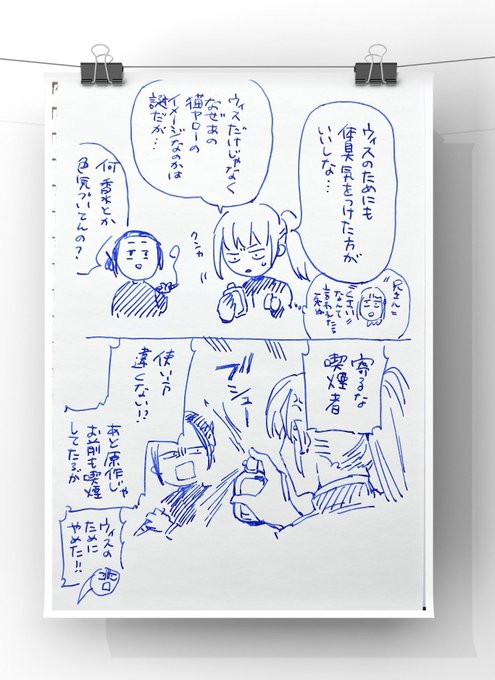 ウィスのためにも
体臭気をつけた方が
いいしな…
兄さん
くさい
なんて
言われたら
死ぬ
ウィスだけじゃなく
なぜあの
猫ヤローの
イメージなのかは
謎だが…
クシャ
何香水とか
色気づいてんの?
寄るな
喫煙者
ブシュー
使い方
違くない!?
あと原作じゃ
お前も喫煙
してたろが
ウィスの
ために
やめた!!